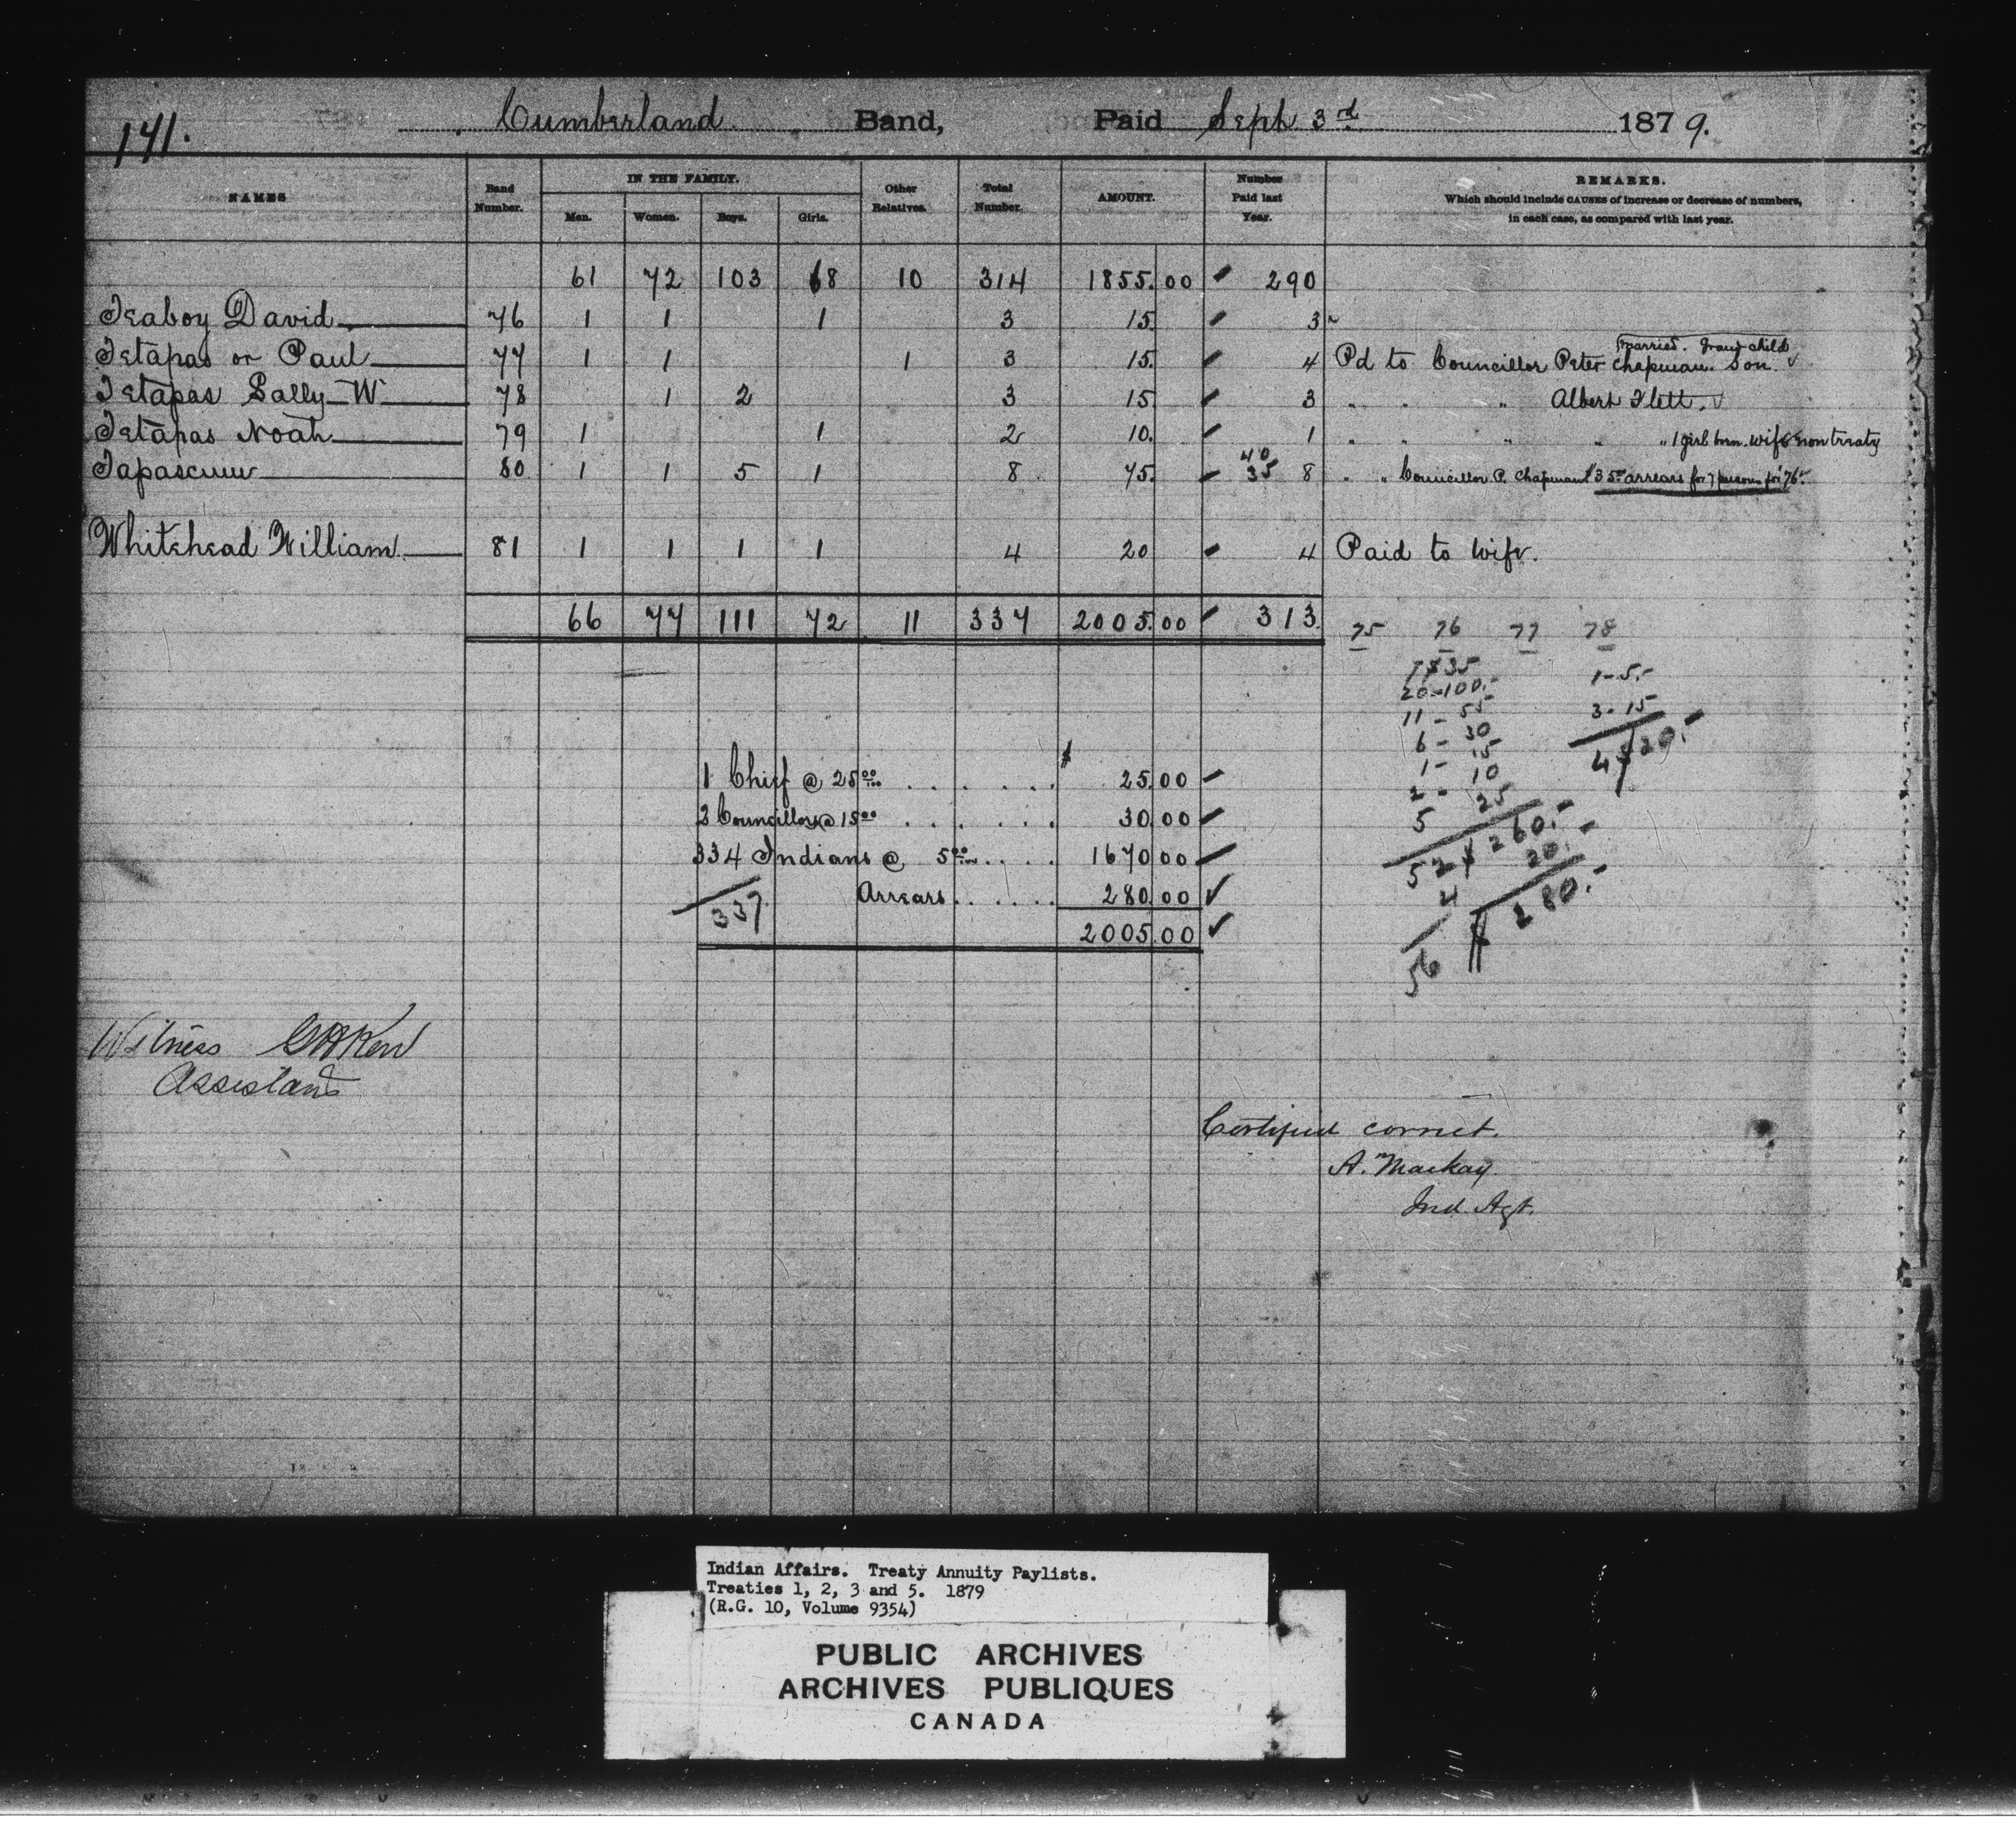 141. Cumberland Band, Paid Sept 3rd 1879.
NAMES Band Number. IN THE FAMILY. Other Relatives. Total Number. AMOUNT. Number Paid last Year. REMARKS.
Men. Women. Boys. Girls. Which should include CAUSES of increase or decrease of numbers,
in each case, as compared with last year.
61 72 103 68 10 314 1855.00 290
Teaboy David 76 1 1 1 3 15. 3
married. Grand child
Tetapas or Paul 77 1 1 1 3 15. 4 Pd to Councillor Peter Chapman. Son.
Tetapas Sally W 78 1 2 3 15 3 " " " Albert Flett.
Tetapas Noah 79 1 1 2 10. 1 " " " " " 1 girl born. wife non treaty
40
Tapascum 80 1 1 5 1 8 75. 35 8 " " Councillor P. Chapman $35.00 arrears for 7 persons for '76.
Whitehead William. 81 1 1 1 1 4 20 4 Paid to wife.
66 77 111 72 11 337 2005.00 313.
75 76 77 78
7 $35 1-5.-
20-100.- 3-15
11-55 4 $20.-
6-30
1-15
2-10
5 25
52 $260.-
4 20.-
56 $280.-
$
1 Chief @ 25.00 . . . . . . 25.00
2 Councillors @ 15.00 . . . . . . 30.00
334 Indians @ 5.00 . . . . 1670.00
337 Arrears . . . . . . 280.00
2005.00
Witness
Assistant
Certified correct.
A. Mackay.
Ind. Agt.
Indian Affairs. Treaty Annuity Paylists.
Treaties 1, 2, 3 and 5. 1879
(R.G. 10, Volume 9354)
PUBLIC ARCHIVES
ARCHIVES PUBLIQUES
CANADA